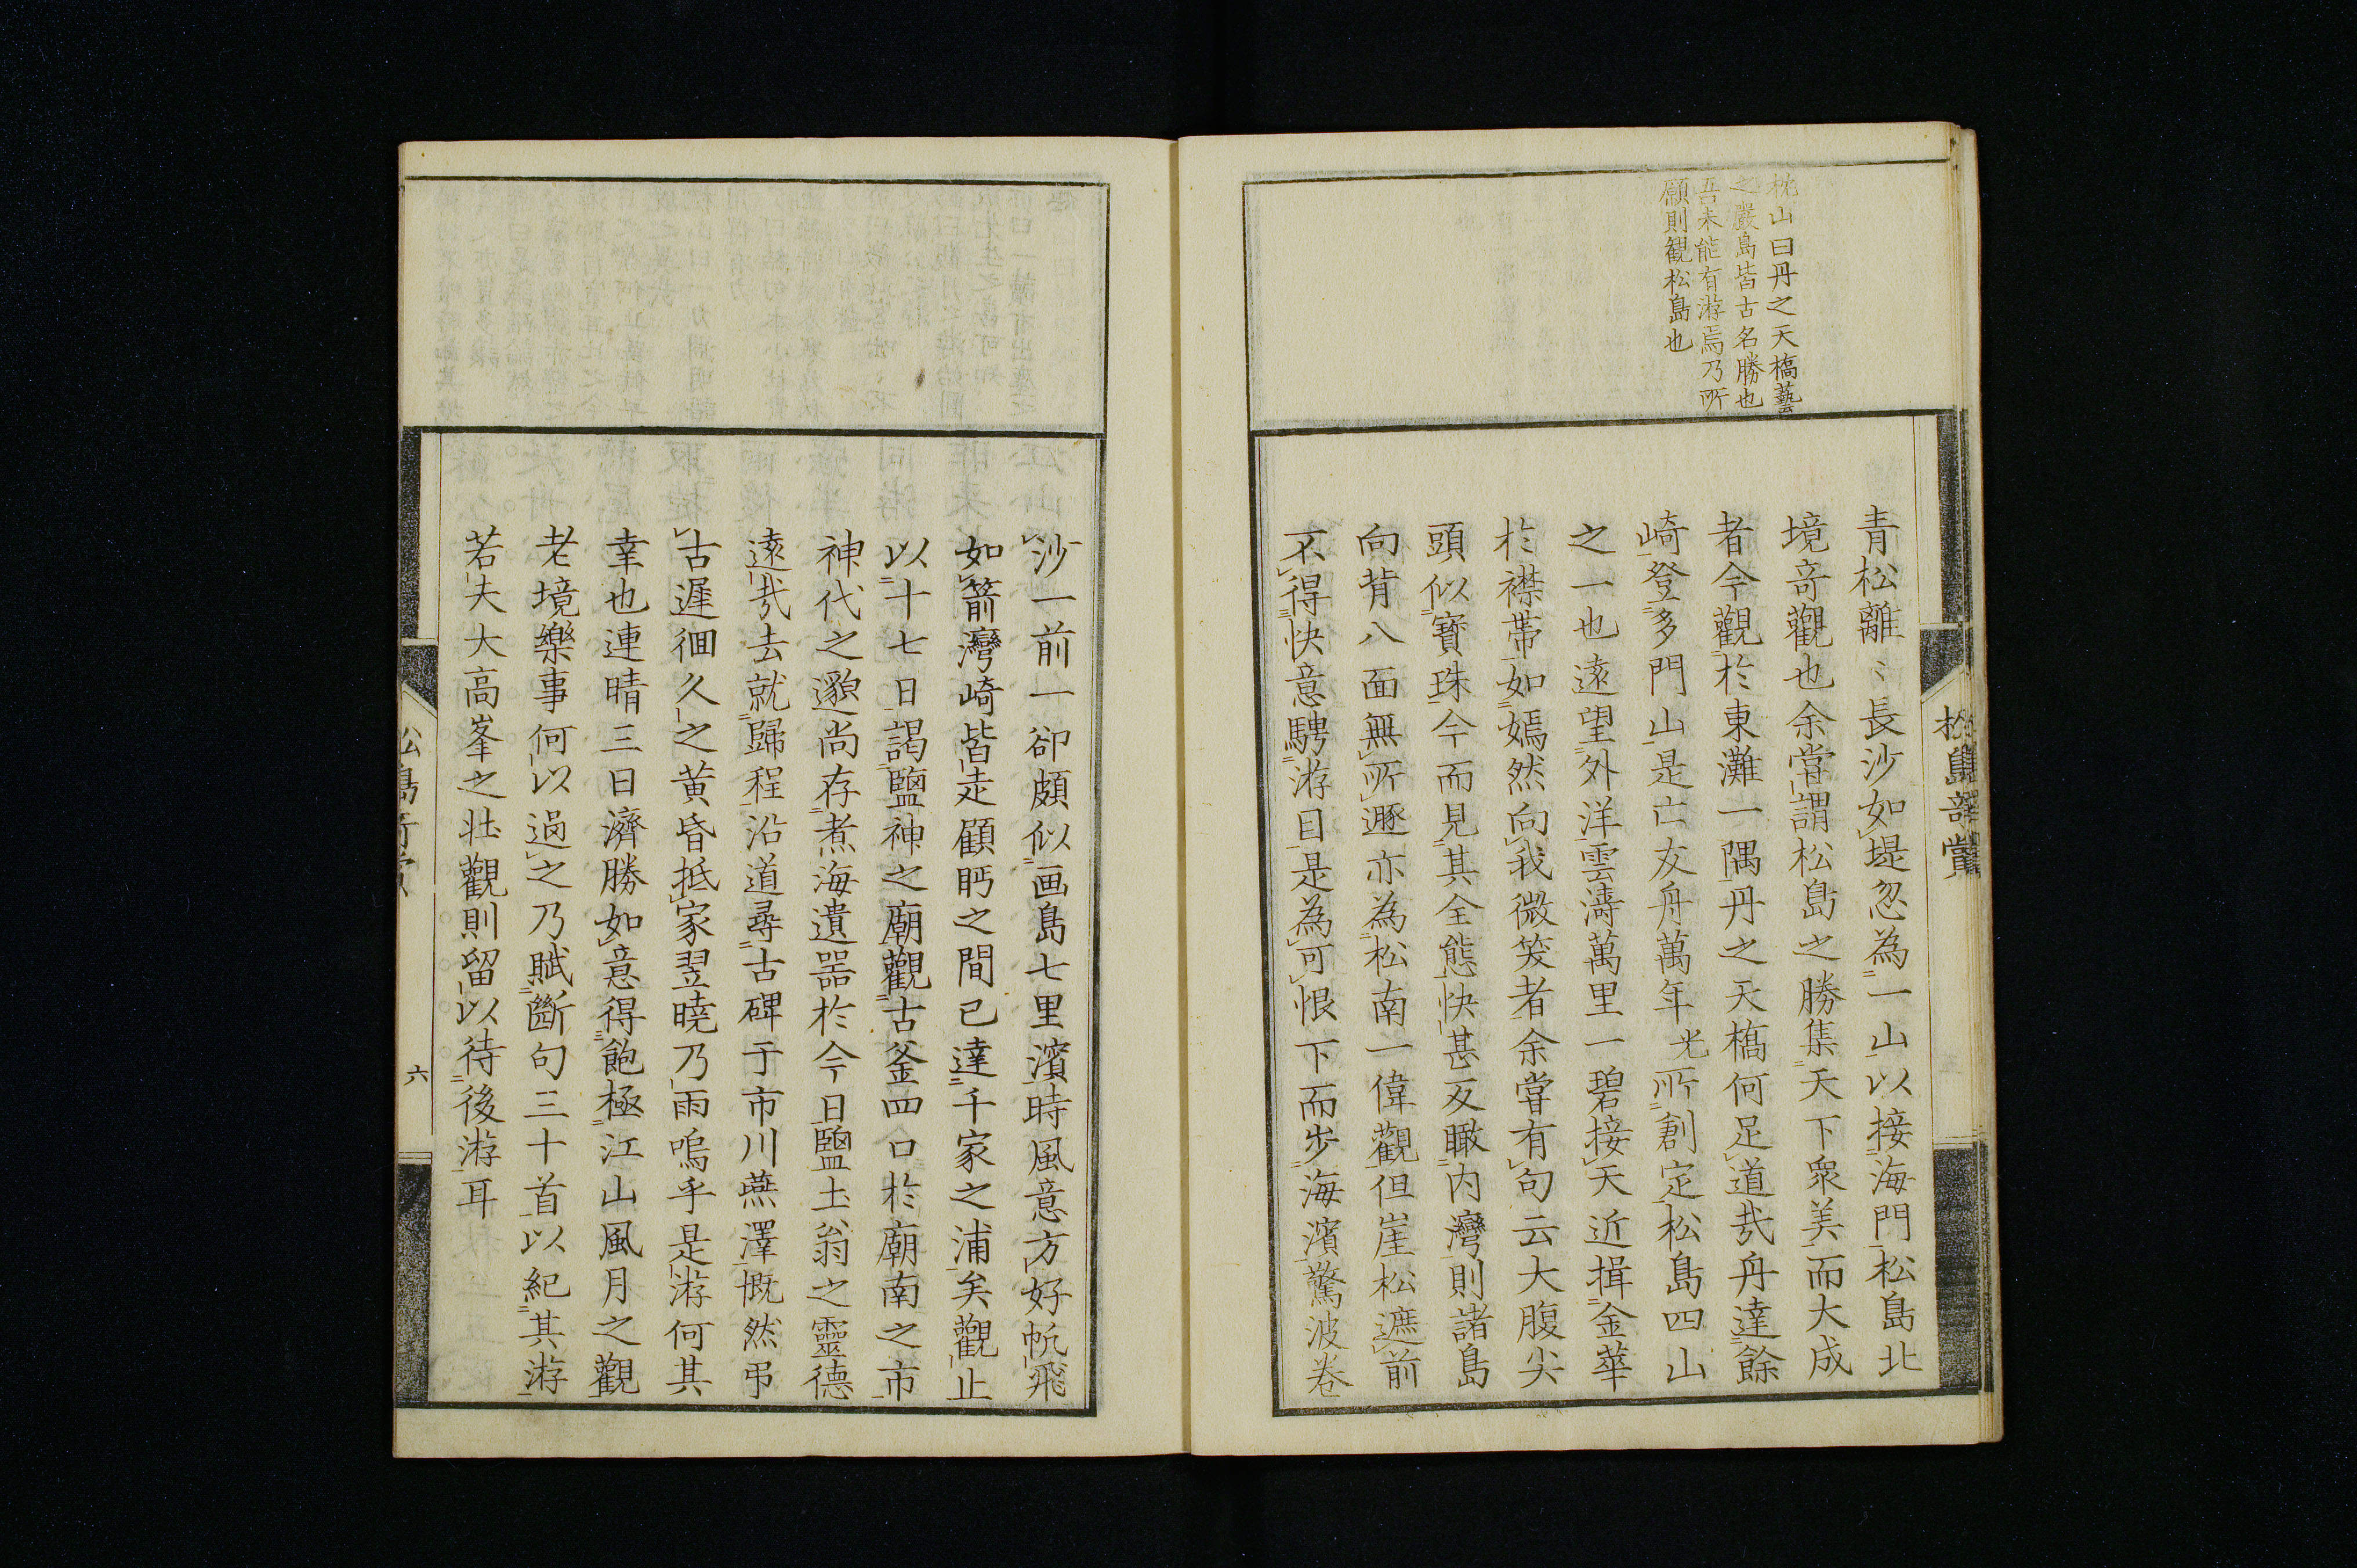 枕山曰丹之天橋藝
之嚴島皆古名勝也
吾未能有游焉乃所
願則観松島也
青松離〻長沙如堤忽為一山以接海門松島北
境竒觀也余嘗謂松島之勝集天下衆美而大成
者今觀於東灘一隅丹之天橋何足道㢤舟達餘
崎登多門山是亡友舟萬年光所創定松島四山
之一也遠望外洋雲濤萬里一碧接天近揖金華
於襟帯如嫣然向我微笑者余嘗有句云大腹尖
頭似寳珠今而見其全態快甚反瞰内灣則諸島
向背八面無所遯亦為松南一偉觀但崖松遮前
不得快意騁游目是為可恨下而步海濱驚波卷
沙一前一卻頗似画島七里濱時風意方好帆飛
如箭灣崎皆走顧眄之間已達千家之浦矣觀止
以十七日謁鹽神之廟觀古釜四口於廟南之市
神代之邈尚存煮海遺噐於今日鹽土翁之靈德
遠㢤去就歸程沿道尋古碑于市川燕澤慨然弔
古遲徊久之黄昏抵家翌曉乃雨嗚乎是游何其
幸也連晴三日濟勝如意得飽極江山風月之觀
老境樂事何以過之乃賦斷句三十首以紀其游
若夫大高峯之壯觀則留以待後游耳
六